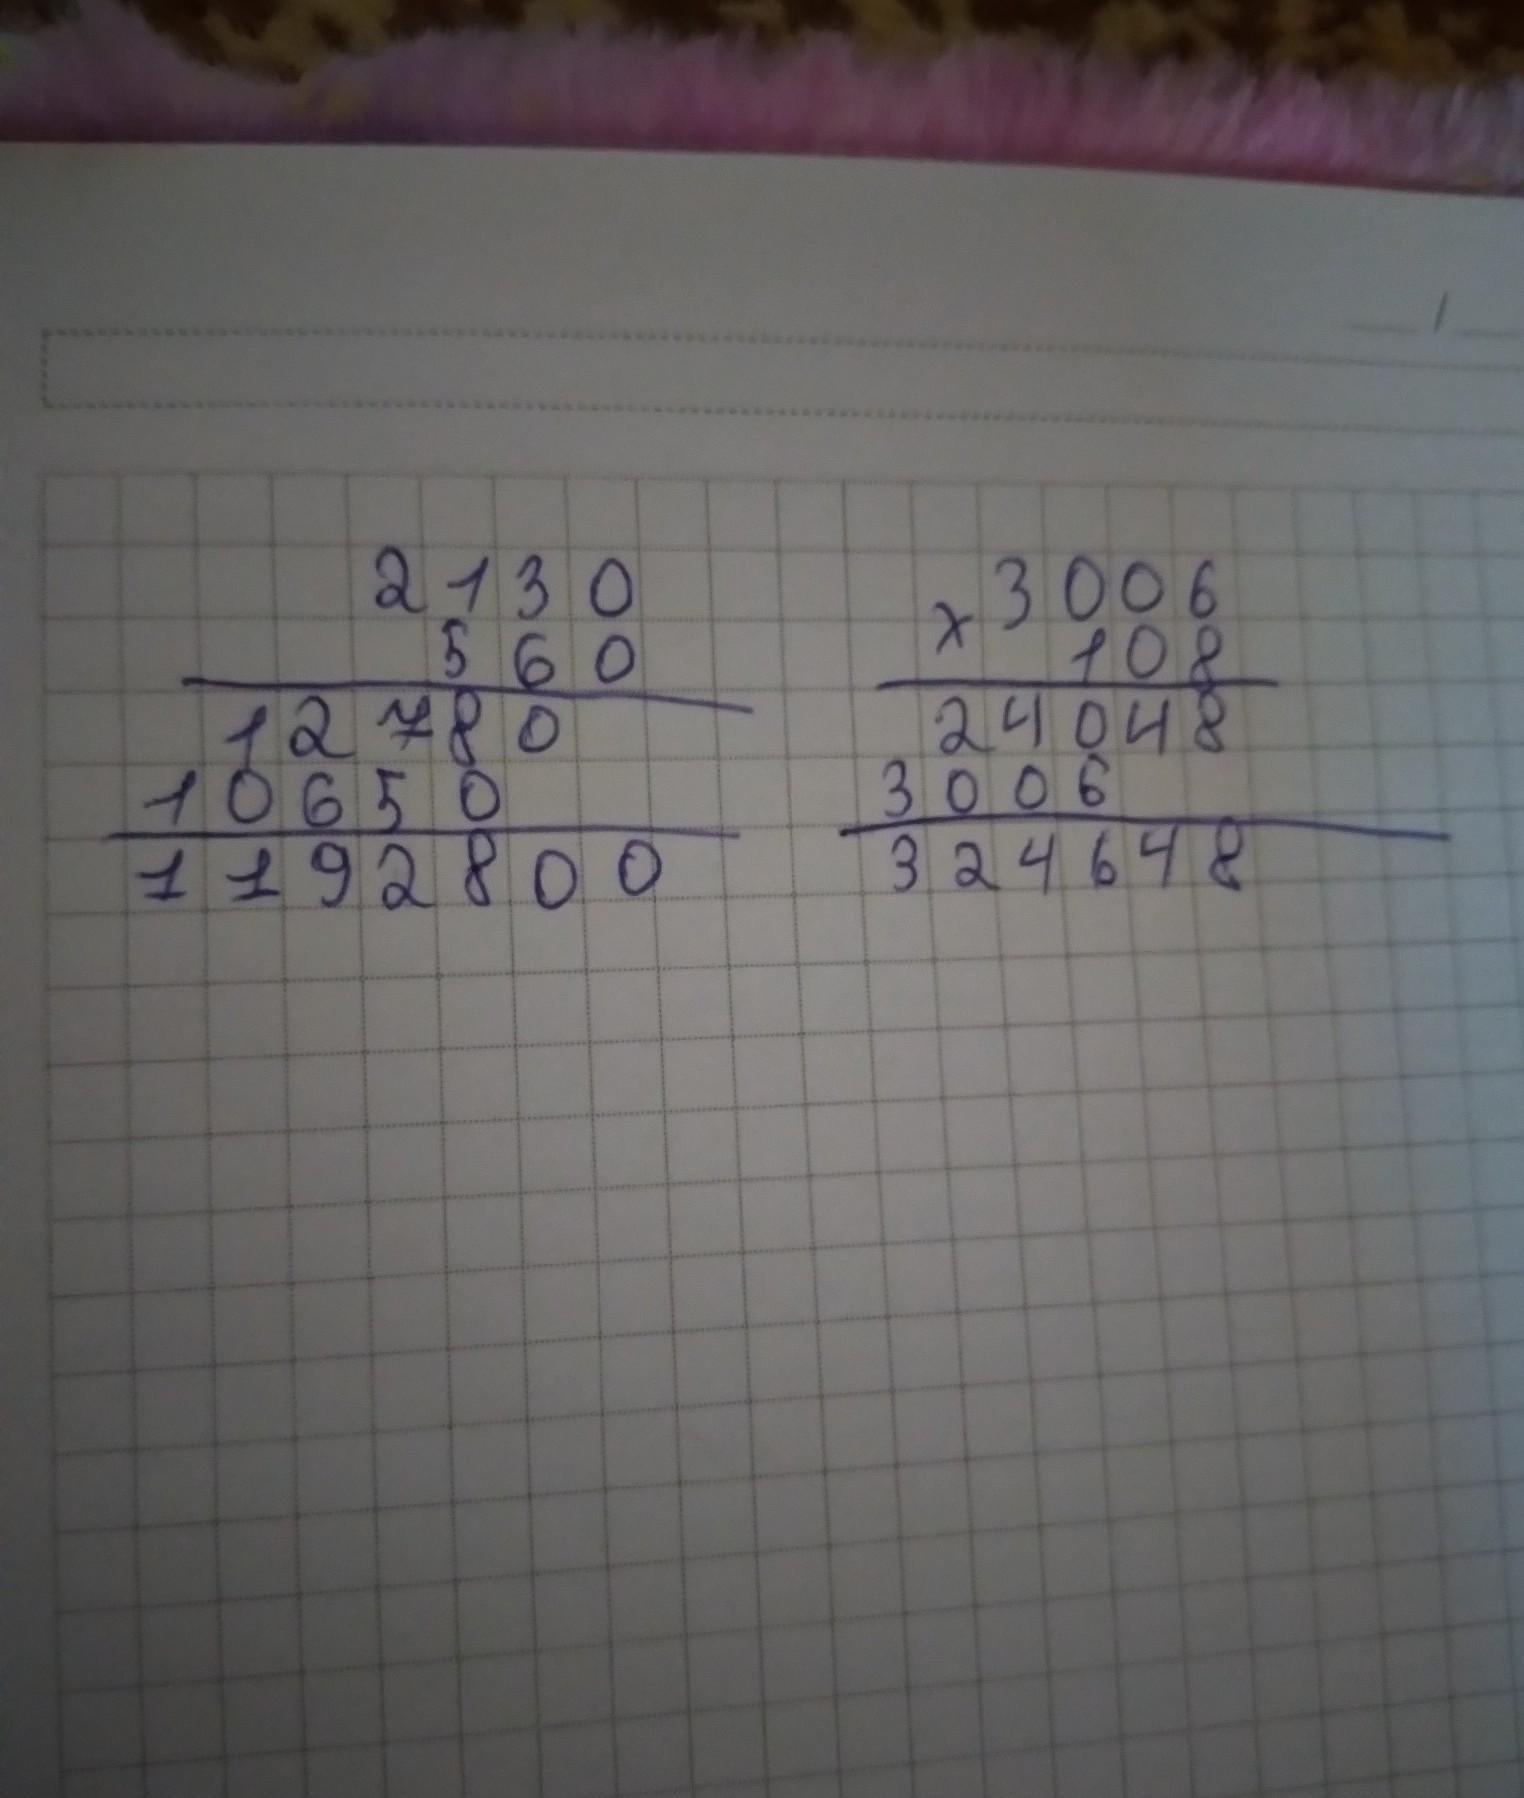 2130
560
12780
10650
1192800
x 3006
108
24048
3006
324648